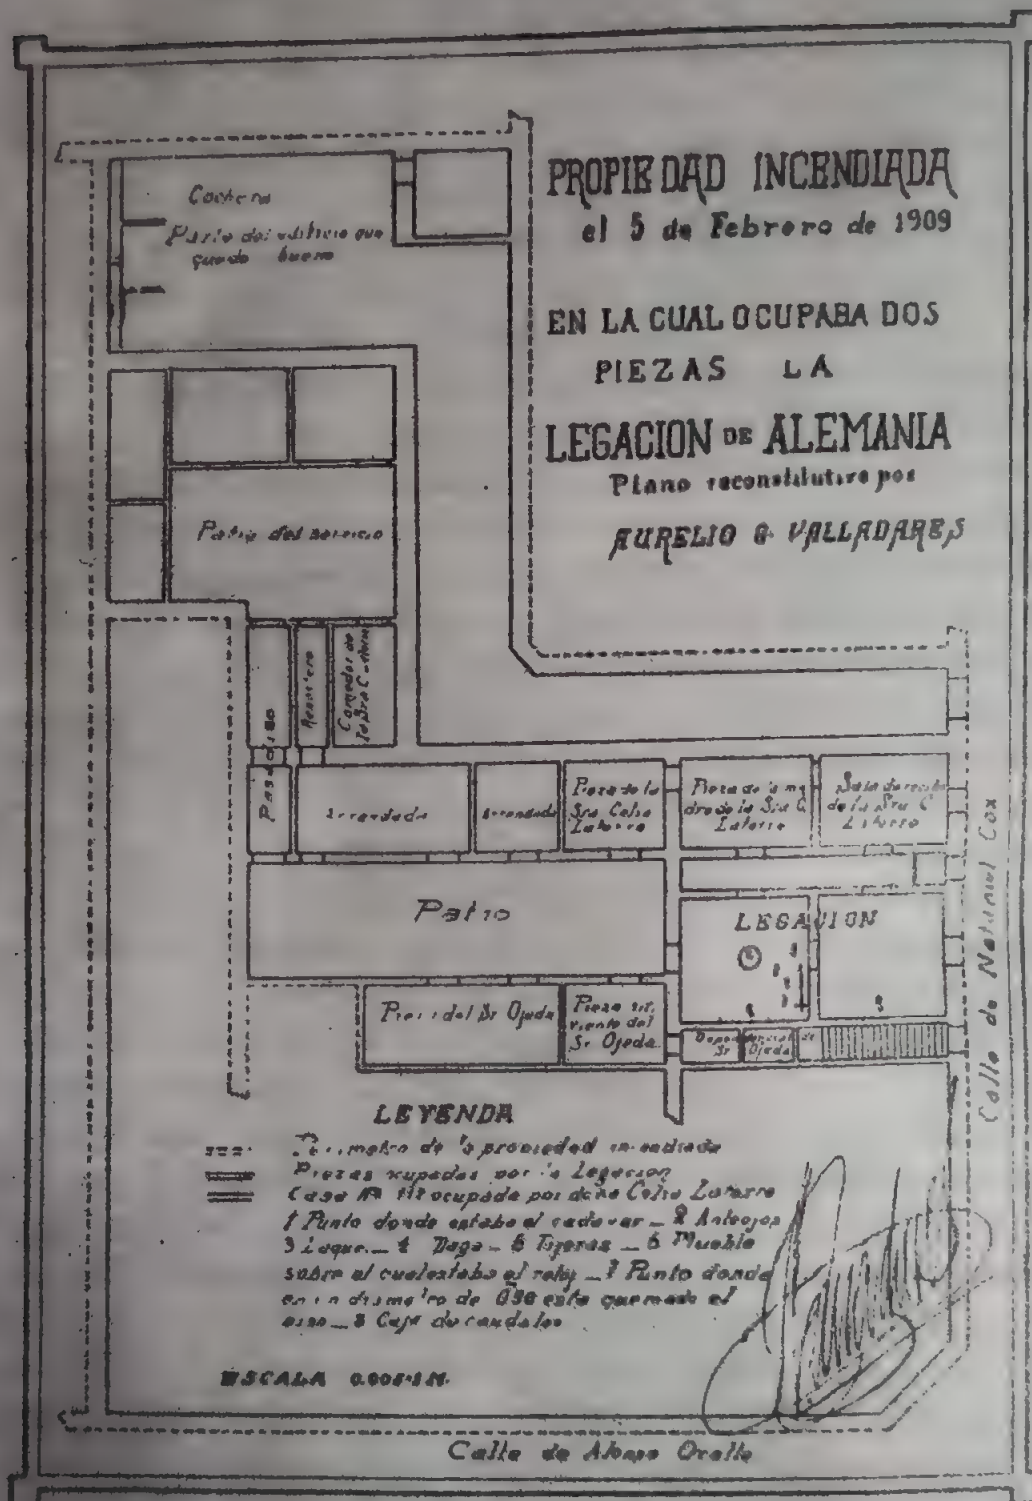 PROPIEDAD INCENDIADA
el 5 de Febrero de 1909
EN LA CUAL OCUPABA DOS
PIEZAS LA
LEGACION DE ALEMANIA
Plano reconstitutivo por
AURELIO G VALLADARES
Parte del edificio que
quedo bueno
Patio del servicio
Pasadiso
Repostero
Comedor de
la Sra C.
Arrendada
Arrendada
Pieza de la
Sra Celia
Latorre
Pieza de la ma
dre de la Sra C.
Latorre
Sala de recibo
de la Sra C
Latorre
Patio
LEGACION
Pieza del Sr Ojeda
Pieza sir
viente del
Sr Ojeda
Sr Ojeda
Calle de Nataniel Cox
LEYENDA
Perimetro de la propiedad incendiada
Piezas ocupadas por la Legacion
Casa Nº 112 ocupada por doña Celia Latorre
1 Punto donde estaba el cadaver _ 2 Anteojos
3 Laque _ 4 Daga _ 5 Tijeras _ 6 Mueble
sobre el cual estaba el reloj _ 7 Punto donde
en un diametro de 0.30 esta quemado el
piso _ 8 Caja de caudales
ESCALA
Calle de Alonso Ovalle